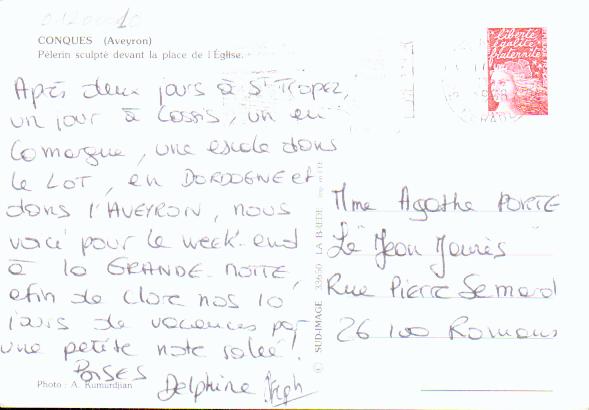 01200010
CONQUES (Aveyron)
Pèlerin sculpté devant la place de l'Église.
liberté
égalité
fraternité
Après deux jours à St Tropez,
un jour à Cassis, un en
Camargue, une escale dans
le LOT, en DORDOGNE et
dans l'AVEYRON, nous
voici pour le week-end
à la GRANDE-MOTTE,
afin de clore nos 10
jours de vacances par
une petite note salée!
BISES
Delphine
Photo : A. Kumurdjian
© SUD-IMAGE 33650 LA BRÈDE
Mme Agathe PORTE
"Le Jean Jaurès"
Rue Pierre Semard
26 100 Romans